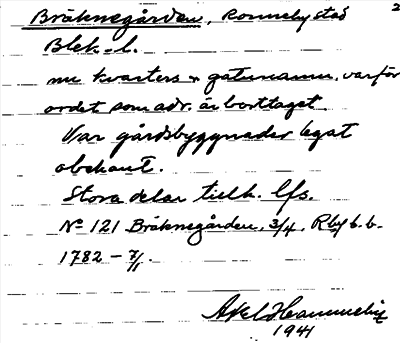 Bräknegården, Ronneby stad 2
Blek. l.
nu kvarters- o gatunamn, varför
ordet som adr. är borttaget.
Var gårdsbyggnader legat
obekant.
Stora delar tillh. lfs.
No 121 Bräknegården, 3/4, Rby b.b.
1782 – 7/1.
Axel Hammelin
1941